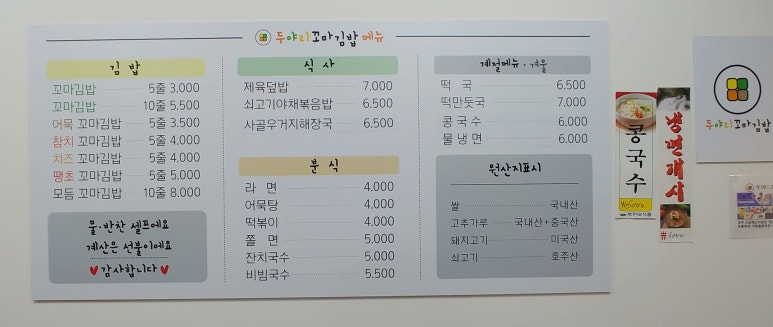 두야리꼬마김밥 메뉴
김 밥
꼬마김밥 5줄 3.000
꼬마김밥 10줄 5.500
어묵 꼬마김밥 5줄 3.500
참치 꼬마김밥 5줄 4.000
치즈 꼬마김밥 5줄 4.000
땡초 꼬마김밥 5줄 5.000
모듬 꼬마김밥 10줄 8.000
물·반찬 셀프에요
계산은 선불이에요
감사합니다
식 사
제육덮밥 7.000
쇠고기야채볶음밥 6.500
사골우거지해장국 6.500
분 식
라 면 4.000
어묵탕 4.000
떡볶이 4.000
쫄 면 5.000
잔치국수 5.000
비빔국수 5.500
계절메뉴·겨울
떡 국 6.500
떡만둣국 7.000
콩국수 6.000
물냉면 6.000
원산지표시
쌀 국내산
고추가루 국내산+중국산
돼지고기 미국산
쇠고기 호주산
콩국수
냉면개시
두야리꼬마김밥